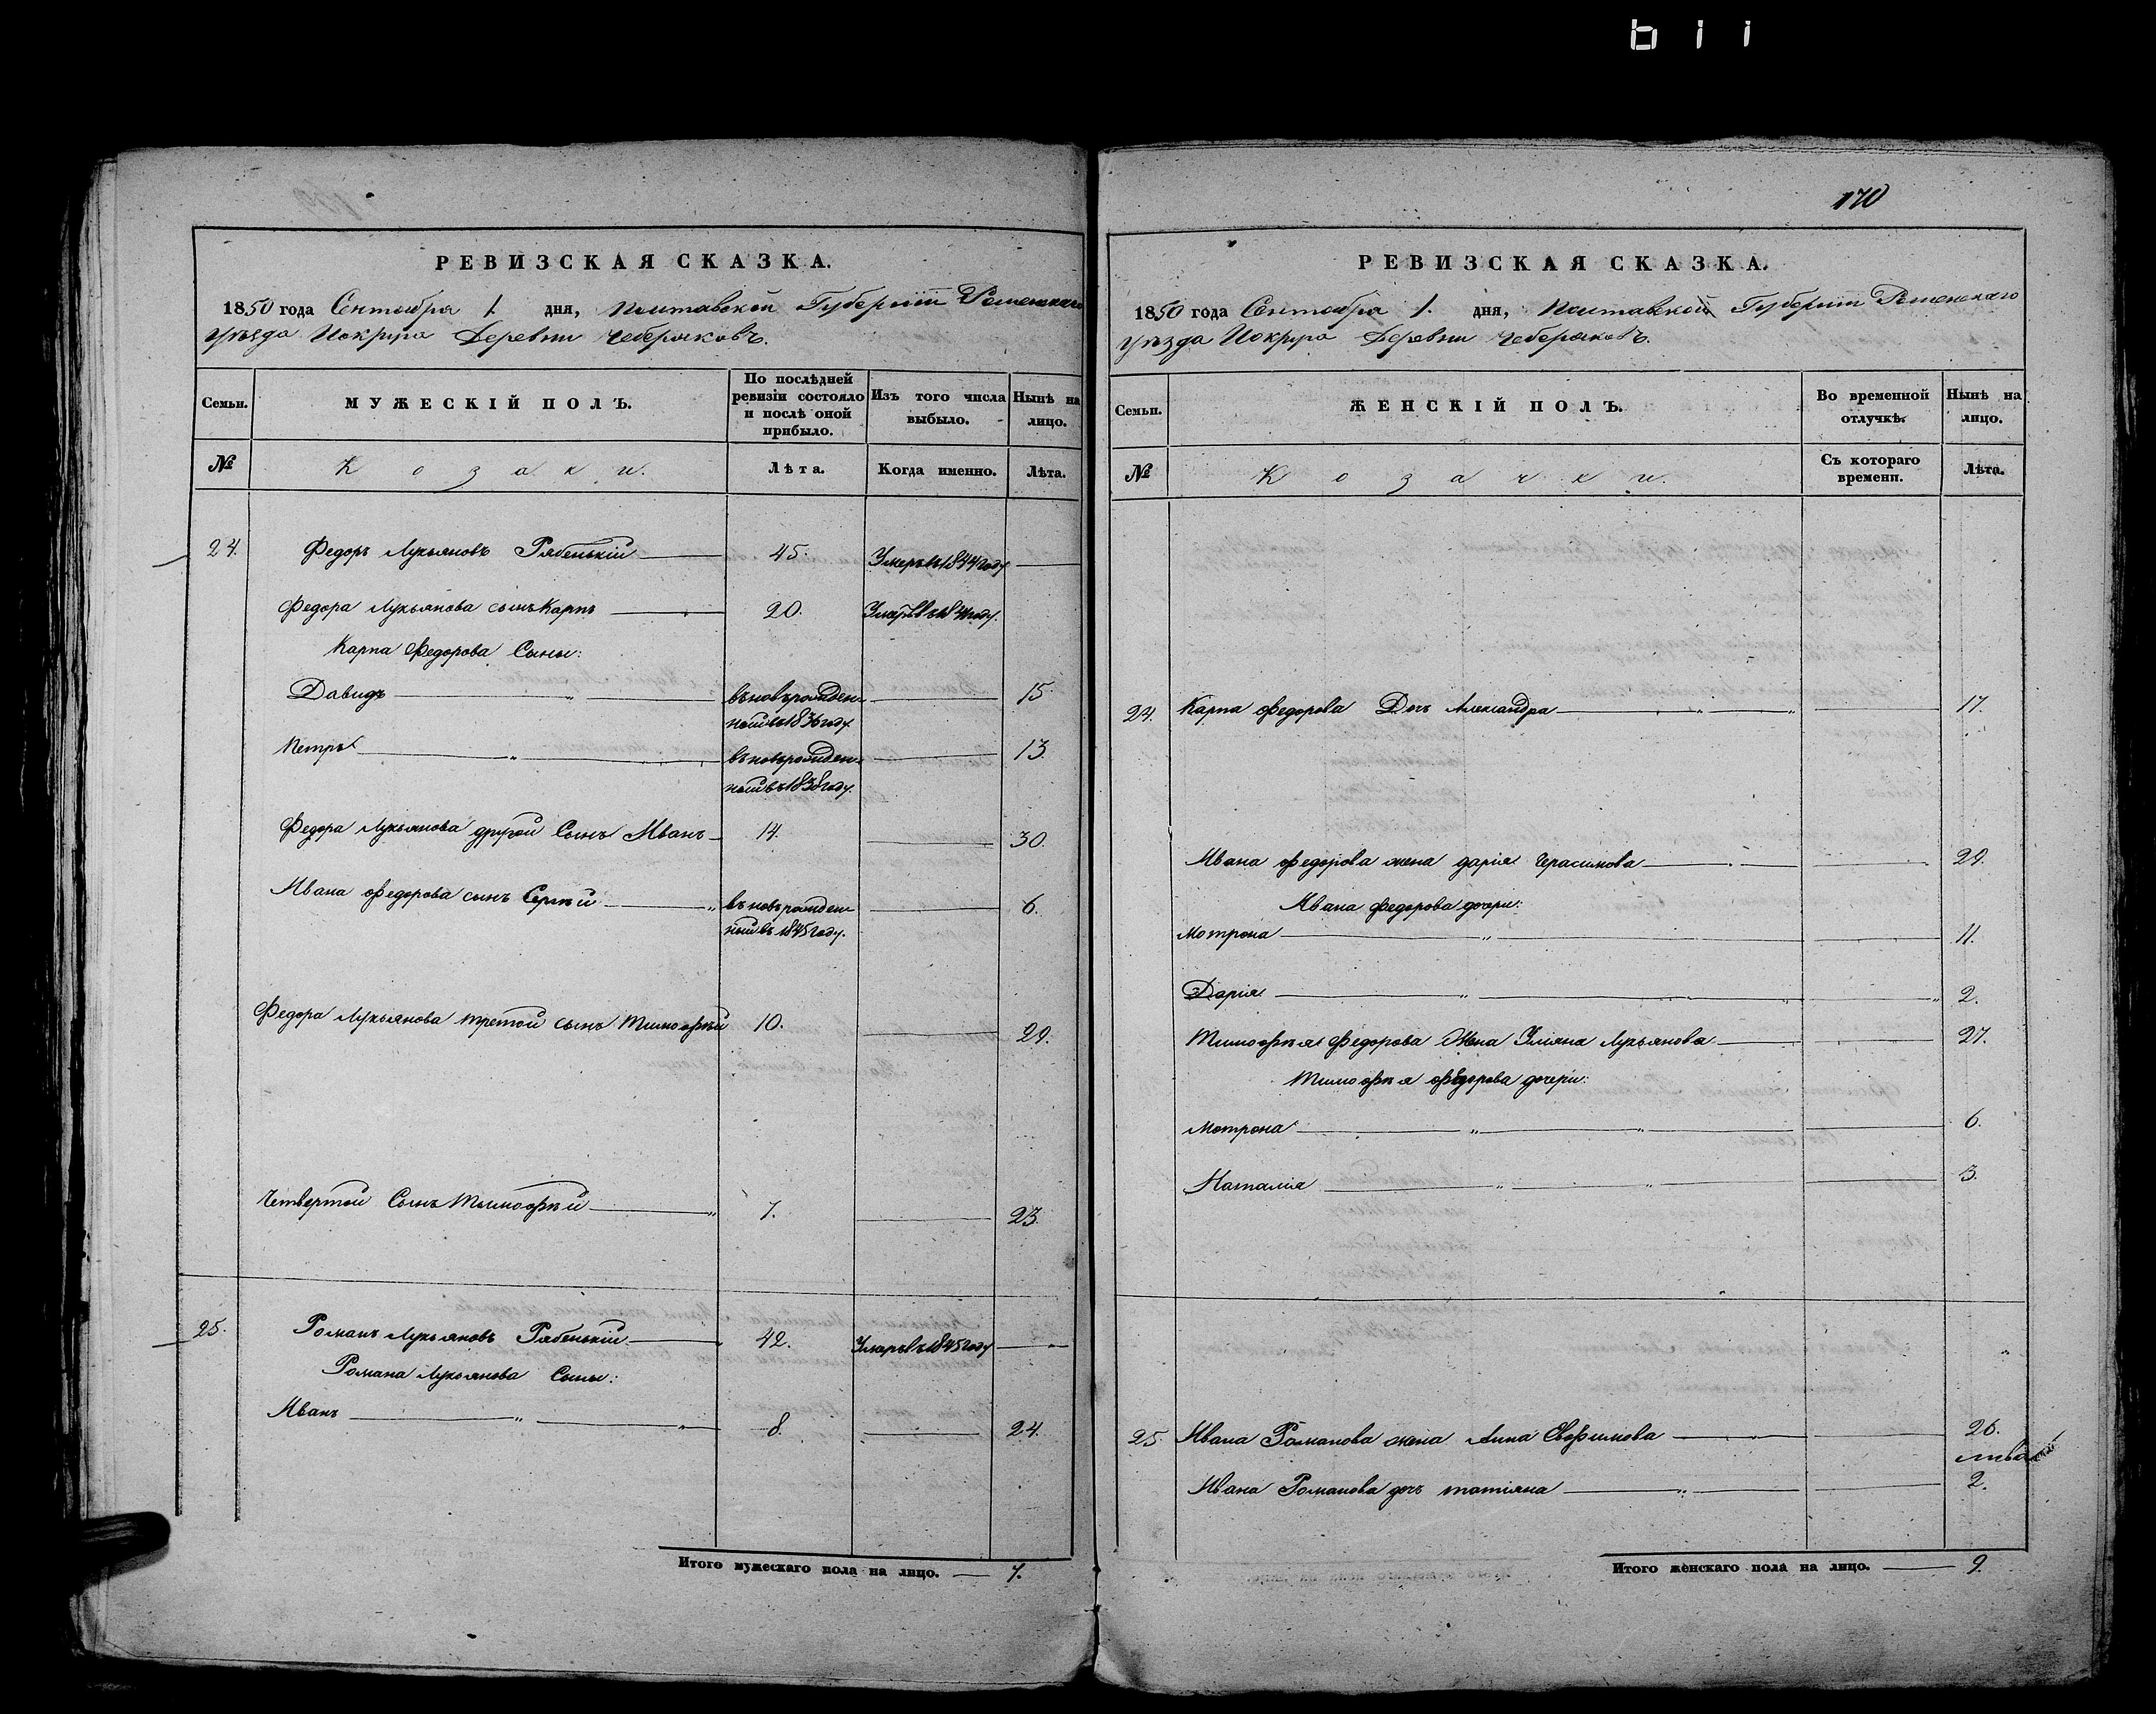 170
РЕВИЗСКАЯ СКАЗКА.
1850 года Сентября 1. дня, Полтавской Губерніи Роменскаго
уѣзда Иокруга Деревни Чеберяковъ.
Семьи.
МУЖЕСКІЙ ПОЛЪ.
По послѣдней ревизіи состояло и послѣ оной прибыло.
Изъ того числа выбыло.
Нынѣ на лицо.
№
Козаки.
Лѣта.
Когда именно.
Лѣта.
24. Федоръ Лукьяновъ Рябенькій 45. Умеръ въ 1844 году
Федора Лукьянова сынъ Карпъ 20. въ году.
Карпа Федорова Сыны:
Давидъ въновьрожден- 15.
ный въ 1836 году.
Петръ въновьрожден- 13.
ный въ 1838 году.
Федора Лукьянова другой Сынъ Иванъ 14. 30.
Ивана Федорова сынъ Сергѣй въновьрожден- 6.
ный въ 1845 году.
Федора Лукьянова третой сынъ Тимофѣй 10. 29.
Четвертой Сынъ Тимофѣй 7. 23.
25. Романъ Лукьяновъ Рябенькій 42. Умеръ въ 1845 году
Романа Лукьянова Сыны:
Иванъ 8. 24.
Итого мужескаго пола на лицо. 7.
РЕВИЗСКАЯ СКАЗКА.
1850 года Сентября 1. дня, Полтавской Губерніи Роменскаго
уѣзда Иокруга Деревни Чеберяковъ.
Семьи.
ЖЕНСКІЙ ПОЛЪ.
Во временной отлучкѣ.
Нынѣ на лицо.
№
Козачки.
Съ котораго времени.
Лѣта.
24. Карпа Федорова Дочь Александра 17.
Ивана Федорова жена Дарія Герасимова 29.
Ивана Федорова дочери:
Мотрона 11.
Дарія 2.
Тимофѣя Федорова Жена Уліяна Лукьянова 27.
Тимофѣя Федорова дочери:
Мотрона 6.
Наталія 3.
25. Ивана Романова жена Анна Евфимова 26.
Ивана Романова дочь Татіяна 2.
Итого женскаго пола на лицо. 9.